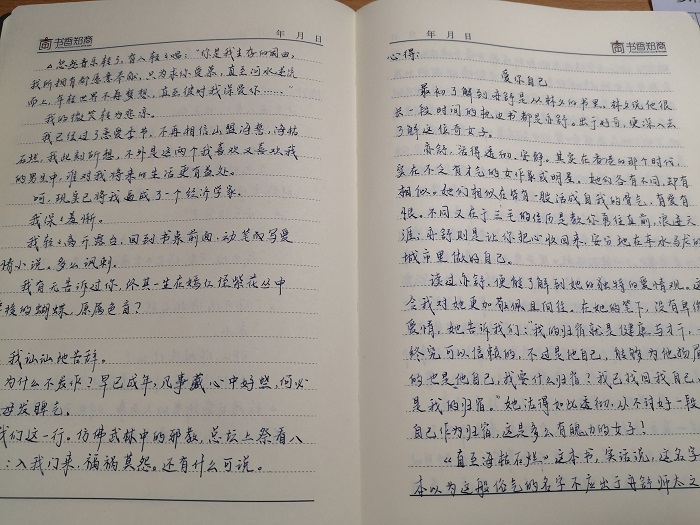 书香知商
年 月 日
忽然音乐轻了,有人轻轻唱:"你是我生存的因由,
我所拥有都愿意奉献,只为求你爱慕,直至河水逆流
而上,年轻世界不再梦想,直至彼时我深爱你……"
我的微笑转为悲凉。
我已经过了恋爱季节,不再相信山盟海誓,海枯
石烂,我此刻所想,不外是这两个我喜欢又喜欢我
的男生中,谁对我将来的生活更有益处。
呵,现实已将我逼成了一个经济学家。
我深深羞惭。
我轻轻离开露台,回到书桌前面,动笔
情小说。多么讽刺。
我有无告诉过你,你其一生在嫣红姹紫花丛中
的蝴蝶,原属色盲?
我讪讪地告辞。
为什么不发作?早已成年,凡事藏心中好些,何必
发脾气。
我们这一行。仿佛武林中的邪教,总坛上祭着八
:入我门来,福祸莫怨。还有什么可说。
年 月 日
书香知商
心得:
爱你自己
最初了解到亦舒是从林夕的书里。林夕说他很
长一段时间的枕边书都是亦舒。出于好奇,便深入去
了解这位奇女子。
亦舒,活得透彻、安静。其实在香港的那个时代,
实在不乏有才气的女作家或明星。她们各有不同,却有
相似。她们相似在皆有一股活成自我的骨气,有爱有
恨。不同又在于三毛的经历是教你勇往直前,浪迹天
涯;亦舒则是让你把心收回来,安安地在车水马龙的
城市里做的自己。
读过亦舒,便能了解到她的独特的爱情观。这
令我对她更加敬佩且向往。在她的笔下,没有卑微
爱情,她告诉我们:"我的归宿就是健康与才干,一
终究可以信赖的,不过是他自己,能够为他扬眉
的也是他自己,我要什么归宿?我已找回我自己,
是我的归宿。"她活得如此透彻,从不讨好一段
自己作为归宿,这是多么有魄力的女子!
《直至海枯石烂》这本书,实话说,这名字
本以为这般俗气的名字不应出于亦舒师太之